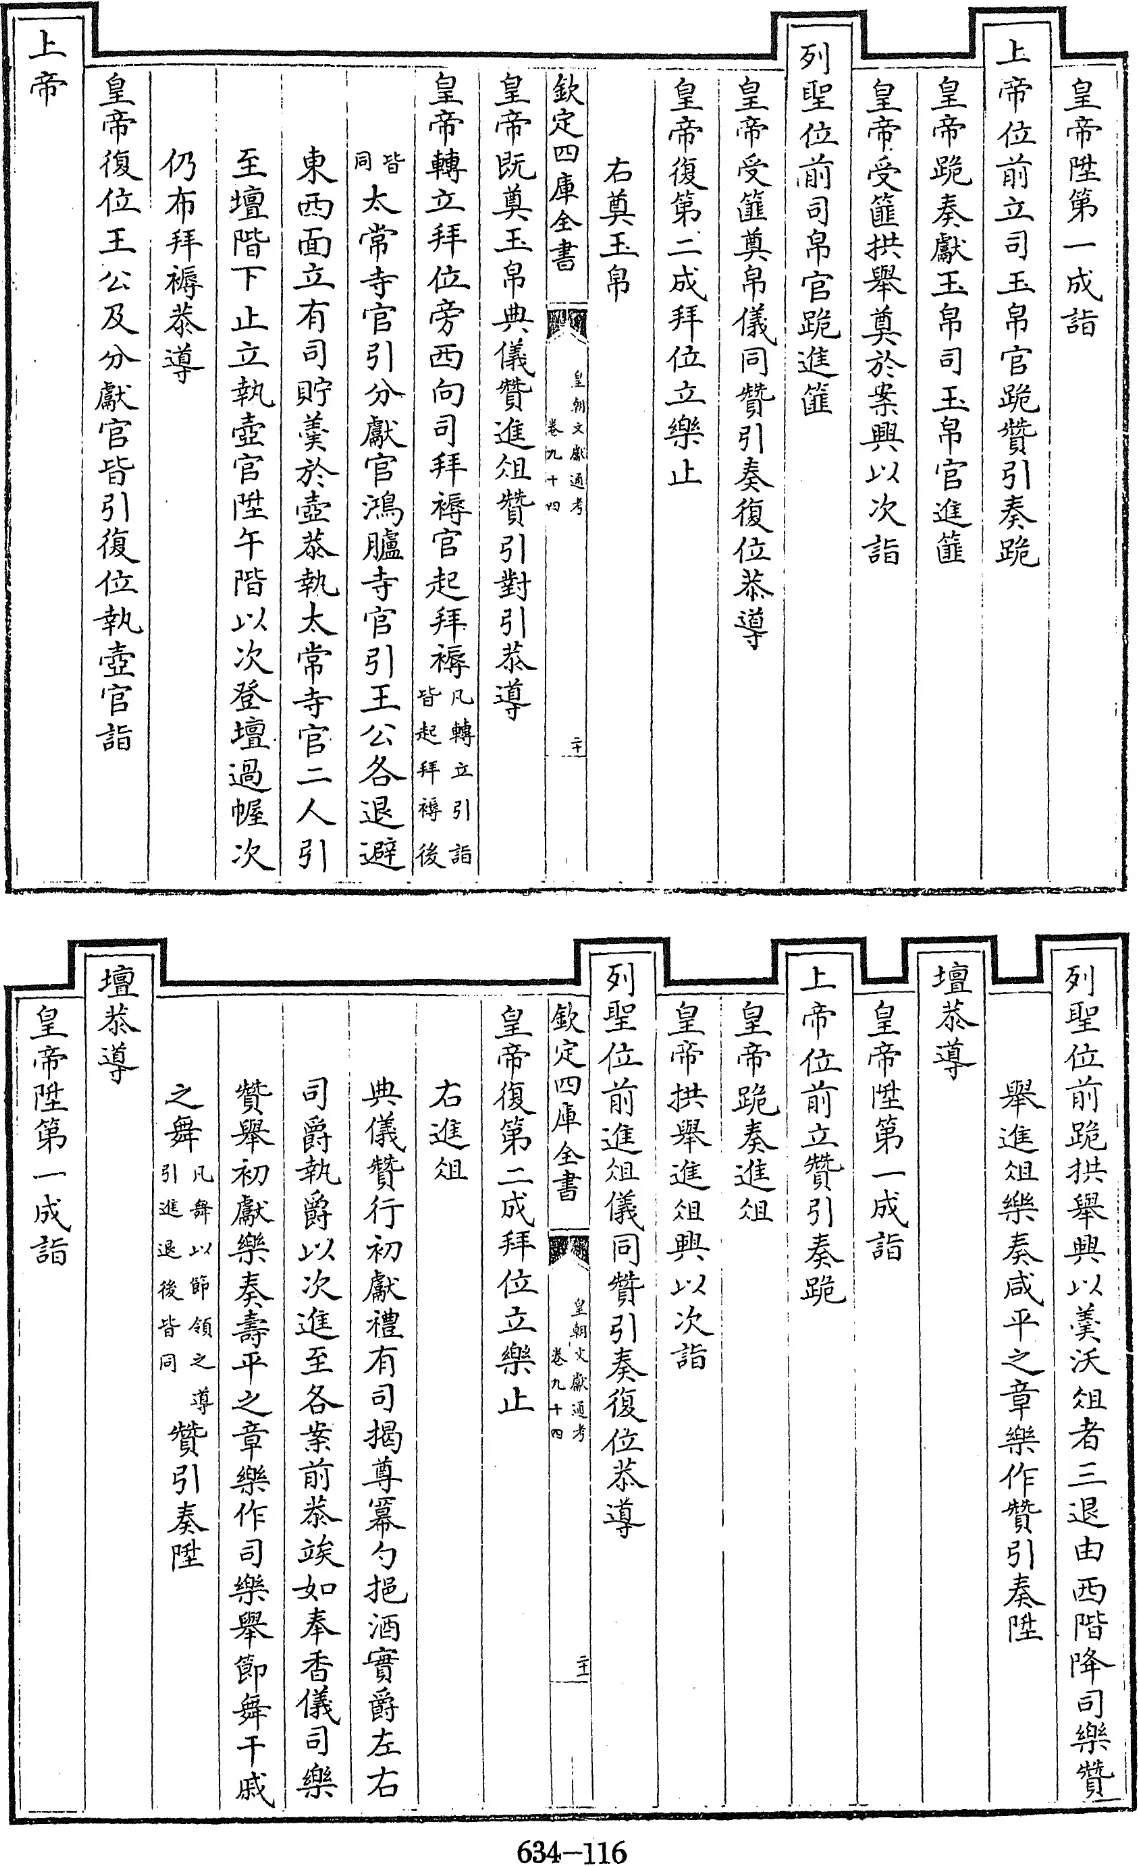 皇帝陞第一成詣
上帝位前立司玉帛官跪贊引奏跪
皇帝跪奏獻玉帛司玉帛官進篚
皇帝受篚拱舉奠於案興以次詣
列聖位前司帛官跪進篚
皇帝受篚奠帛儀同贊引奏復位恭導
皇帝復第二成拜位立樂止
右奠玉帛
欽定四庫全書
皇朝文獻通考
卷九十四
二十
皇帝既奠玉帛典儀贊進俎贊引對引恭導
皇帝轉立拜位旁西向司拜褥官起拜褥凡轉立引詣皆起拜褥後
皆同太常寺官引分獻官鴻臚寺官引王公各退避
東西面立有司貯羹於壺恭執太常寺官二人引
至壇階下止立執壺官陞午階以次登壇過幄次
仍布拜褥恭導
皇帝復位王公及分獻官皆引復位執壺官詣
上帝
列聖位前跪拱舉興以羹沃俎者三退由西階降司樂贊
舉進俎樂奏咸平之章樂作贊引奏陞
壇恭導
皇帝陞第一成詣
上帝位前立贊引奏跪
皇帝跪奏進俎
皇帝拱舉進俎興以次詣
列聖位前進俎儀同贊引奏復位恭導
欽定四庫全書
皇朝文獻通考
卷九十四
二十一
皇帝復第二成拜位立樂止
右進俎
典儀贊行初獻禮有司揭尊冪勺挹酒實爵左右
司爵執爵以次進至各案前恭竢如奉香儀司樂
贊舉初獻樂奏壽平之章樂作司樂舉節舞干戚
之舞凡舞以節領之導引進退後皆同贊引奏陞
壇恭導
皇帝陞第一成詣
634-116